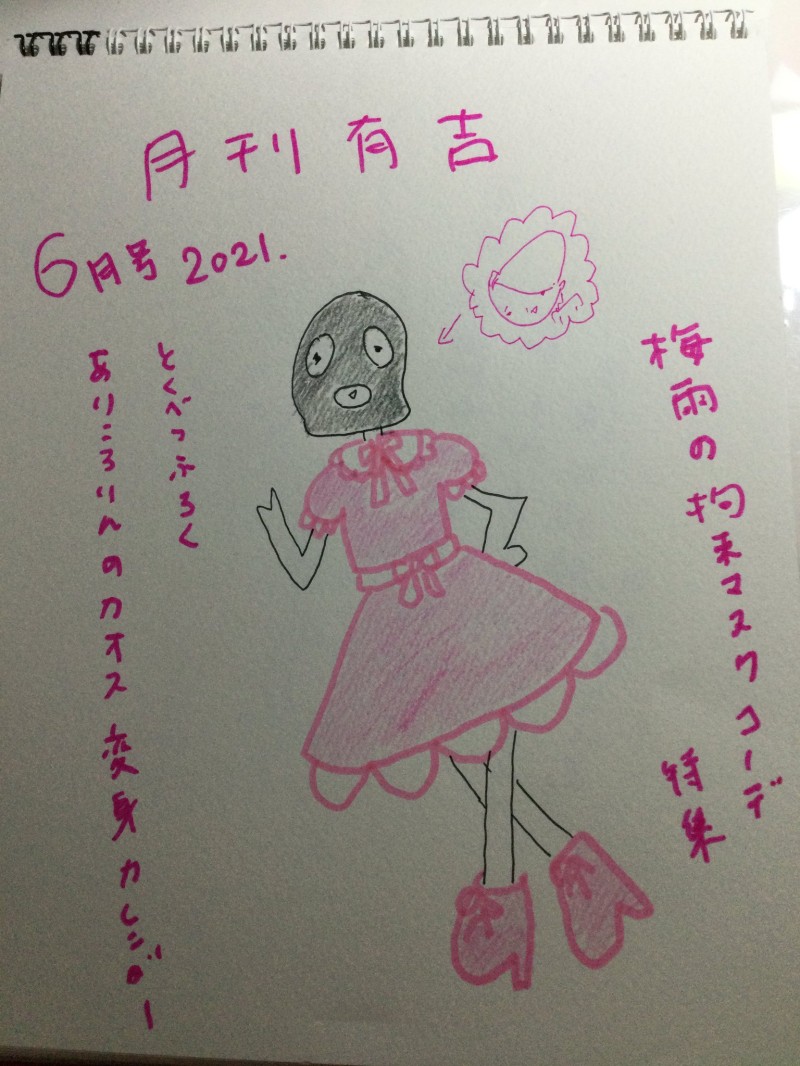 月刊有吉
6月号 2021.
梅雨の拘束マスクコーデ
特集
とくべつふろく
ありころりんのカオス変身カレンダー